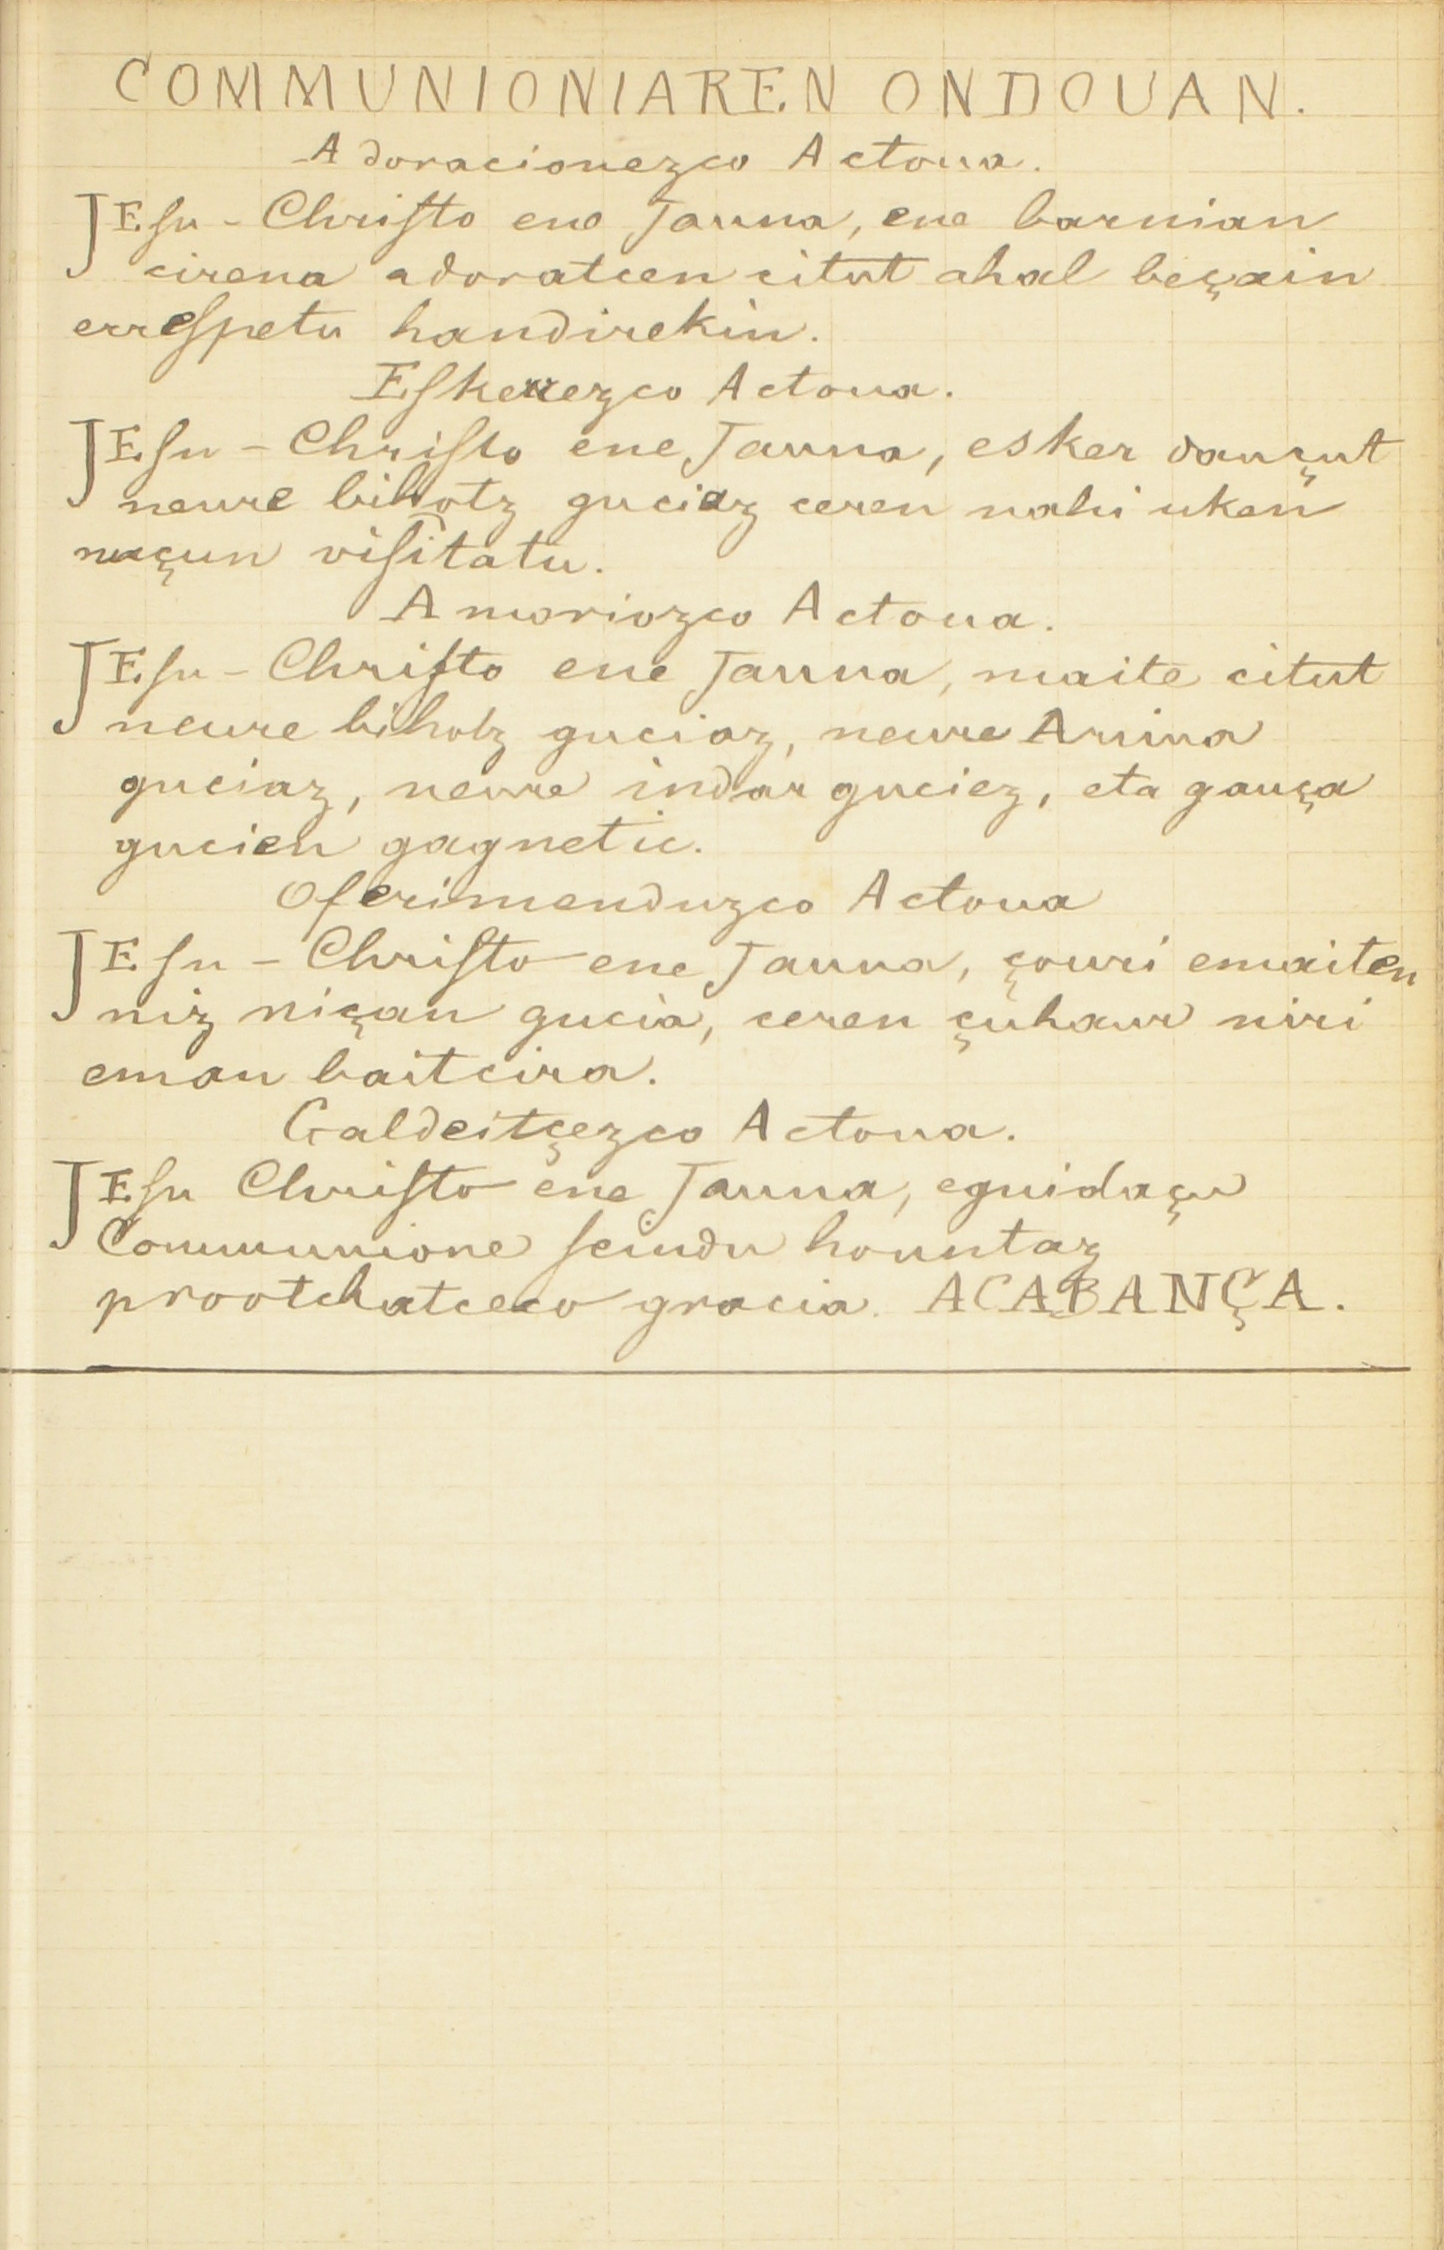 COMMUNIONIAREN ONDOUAN.
Adoracionezco Actoua.
JEſu-Chriſto ene Jauna, ene barnian
cirena adoratcen citut ahal beçain
erreſpetu handirekin.
Eſkerrezco Actoua.
JEſu-Chriſto ene Jauna, esker dauçut
neure bihotz guciaz ceren nahi uken
naçun viſitatu.
Amoriozco Actoua.
JEſu-Chriſto ene Jauna, maite citut
neure bihotz guciaz, neure Arima
guciaz, neure indar guciez, eta gauça
gucien gagnetic.
Oferimenduzco Actoua
JEſu-Chriſto ene Jauna, çouri emaiten
niz niçan gucia, ceren çuhaur niri
eman baitcira.
Galdeitçezco Actoua.
JEſu Chriſto ene Jauna, eguidaçu
Communione ſeindu hountaz
prootchatceco gracia. ACABANÇA.